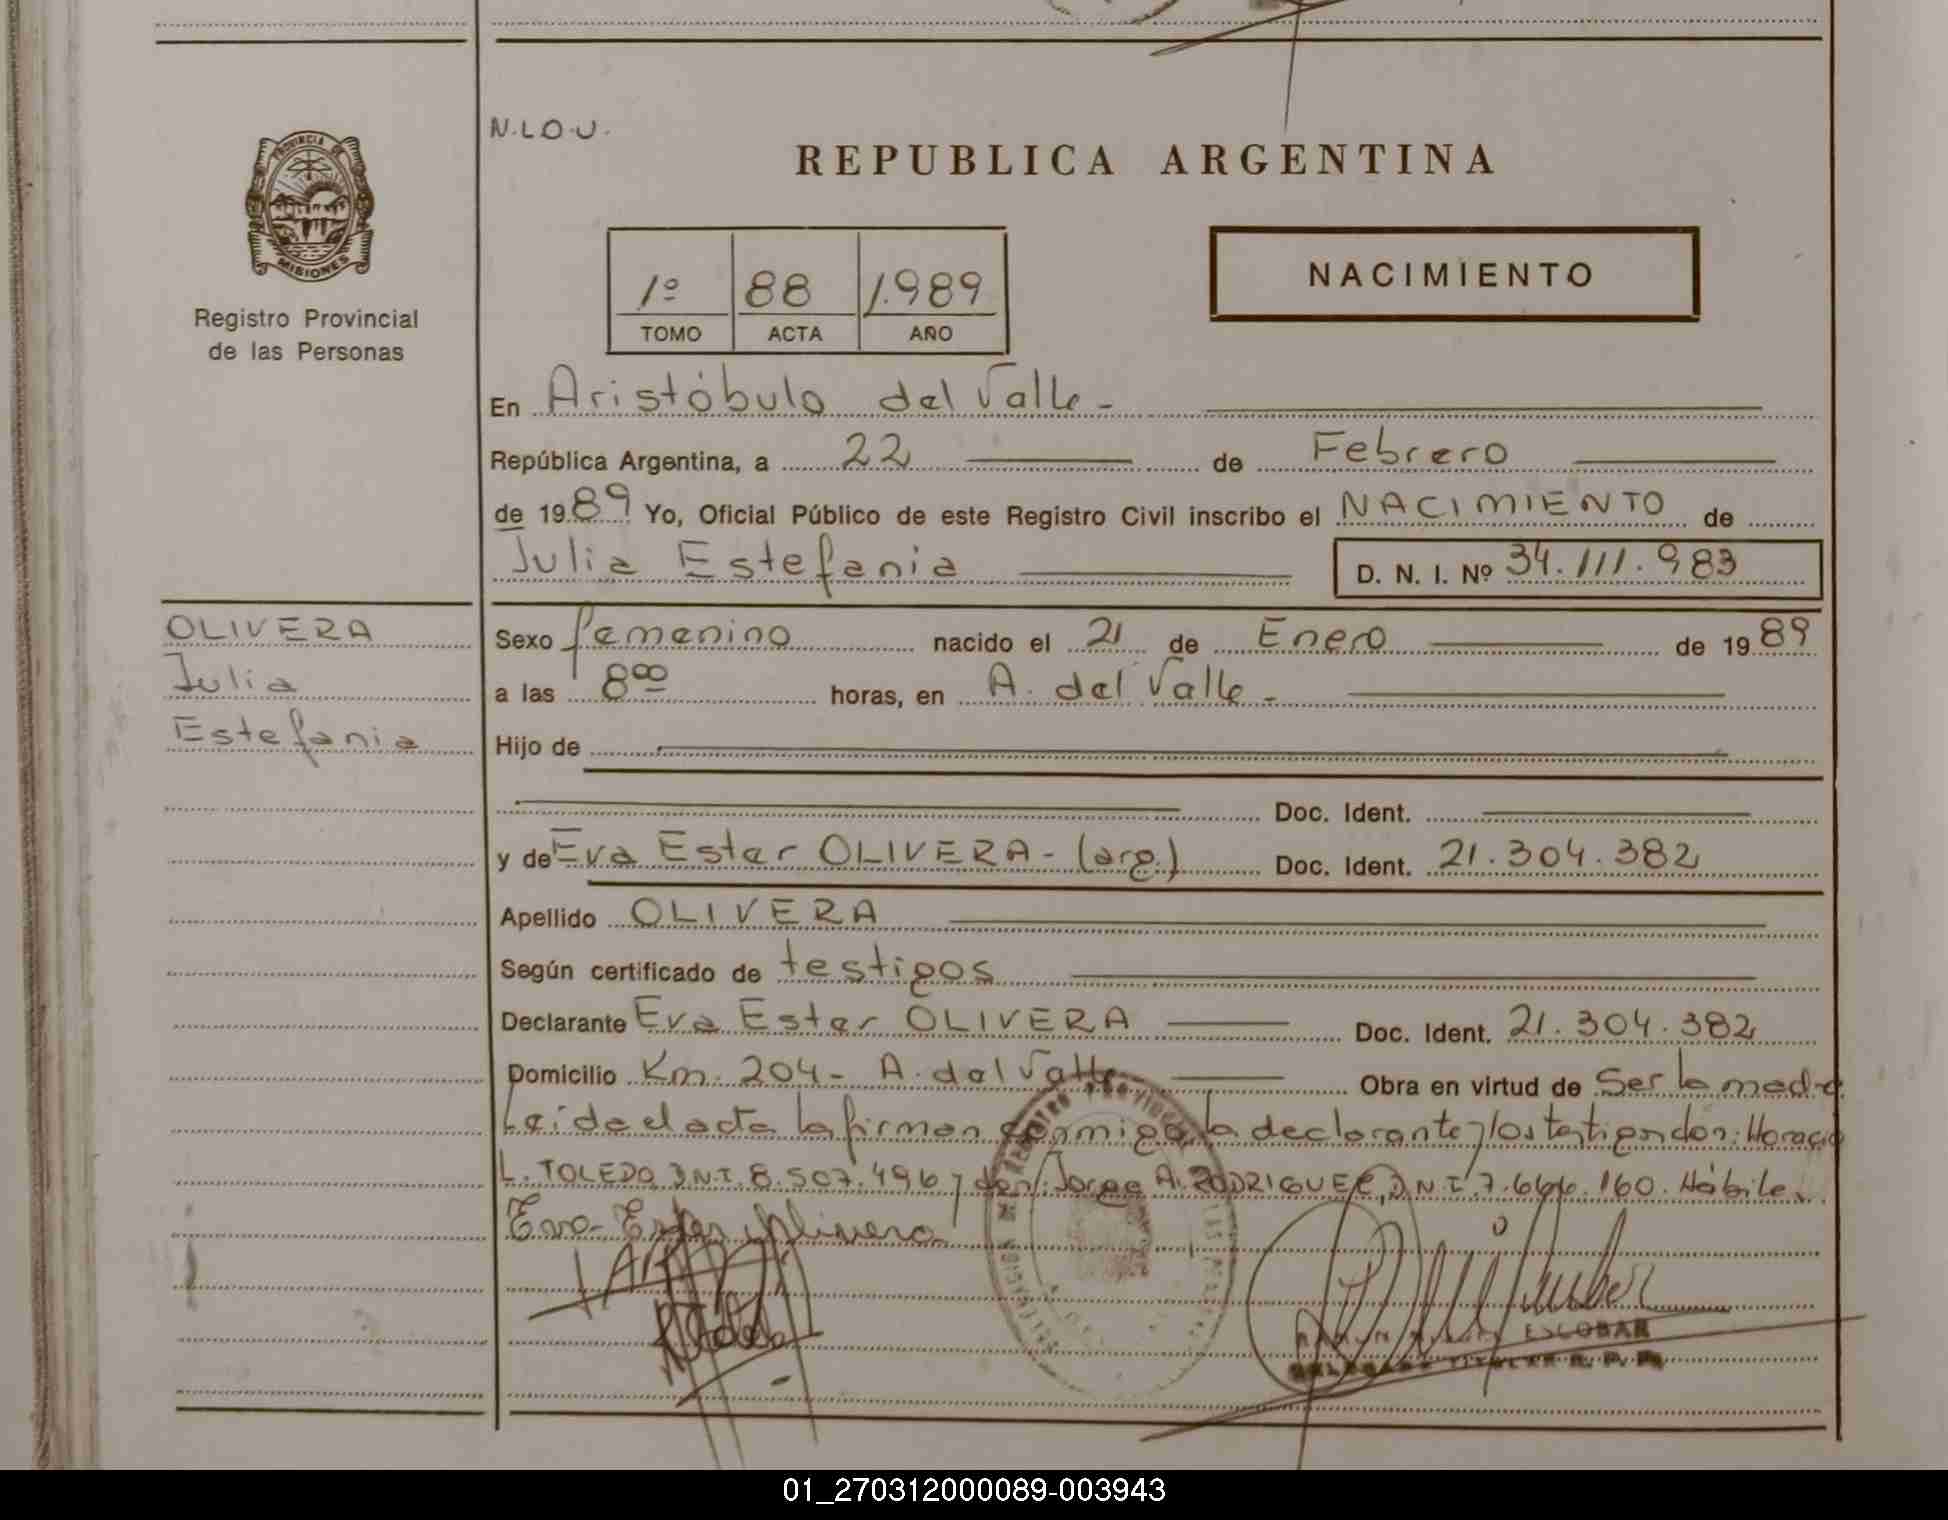 N.LO.U.
REPUBLICA ARGENTINA
PROVINCIA DE
MISIONES
Registro Provincial
de las Personas
1º 88 1.989
TOMO ACTA AÑO
NACIMIENTO
En Aristóbulo del Valle -
República Argentina, a 22 de Febrero
de 1989 Yo, Oficial Público de este Registro Civil inscribo el NACIMIENTO de
Julia Estefania D. N. I. Nº 34.111.983
OLIVERA
Julia
Estefania
Sexo femenino nacido el 21 de Enero de 1989
a las 8⁰⁰ horas, en A. del Valle -
Hijo de
Doc. Ident.
y de Eva Ester OLIVERA - (arg.) Doc. Ident. 21.304.382
Apellido OLIVERA
Según certificado de testigos
Declarante Eva Ester OLIVERA Doc. Ident. 21.304.382
Domicilio Km. 204 - A. del Valle Obra en virtud de Ser la madre
Leída el acta la firman conmigo la declarante y los testigos don: Horacio
L. TOLEDO D.N.I. 8.507.496 y don: Jorge A. RODRIGUEZ, D.N.I. 7.666.160. Hábiles.
Eva Ester Olivera
ESCOBAR
TITULAR R. P. P.
01_270312000089-003943